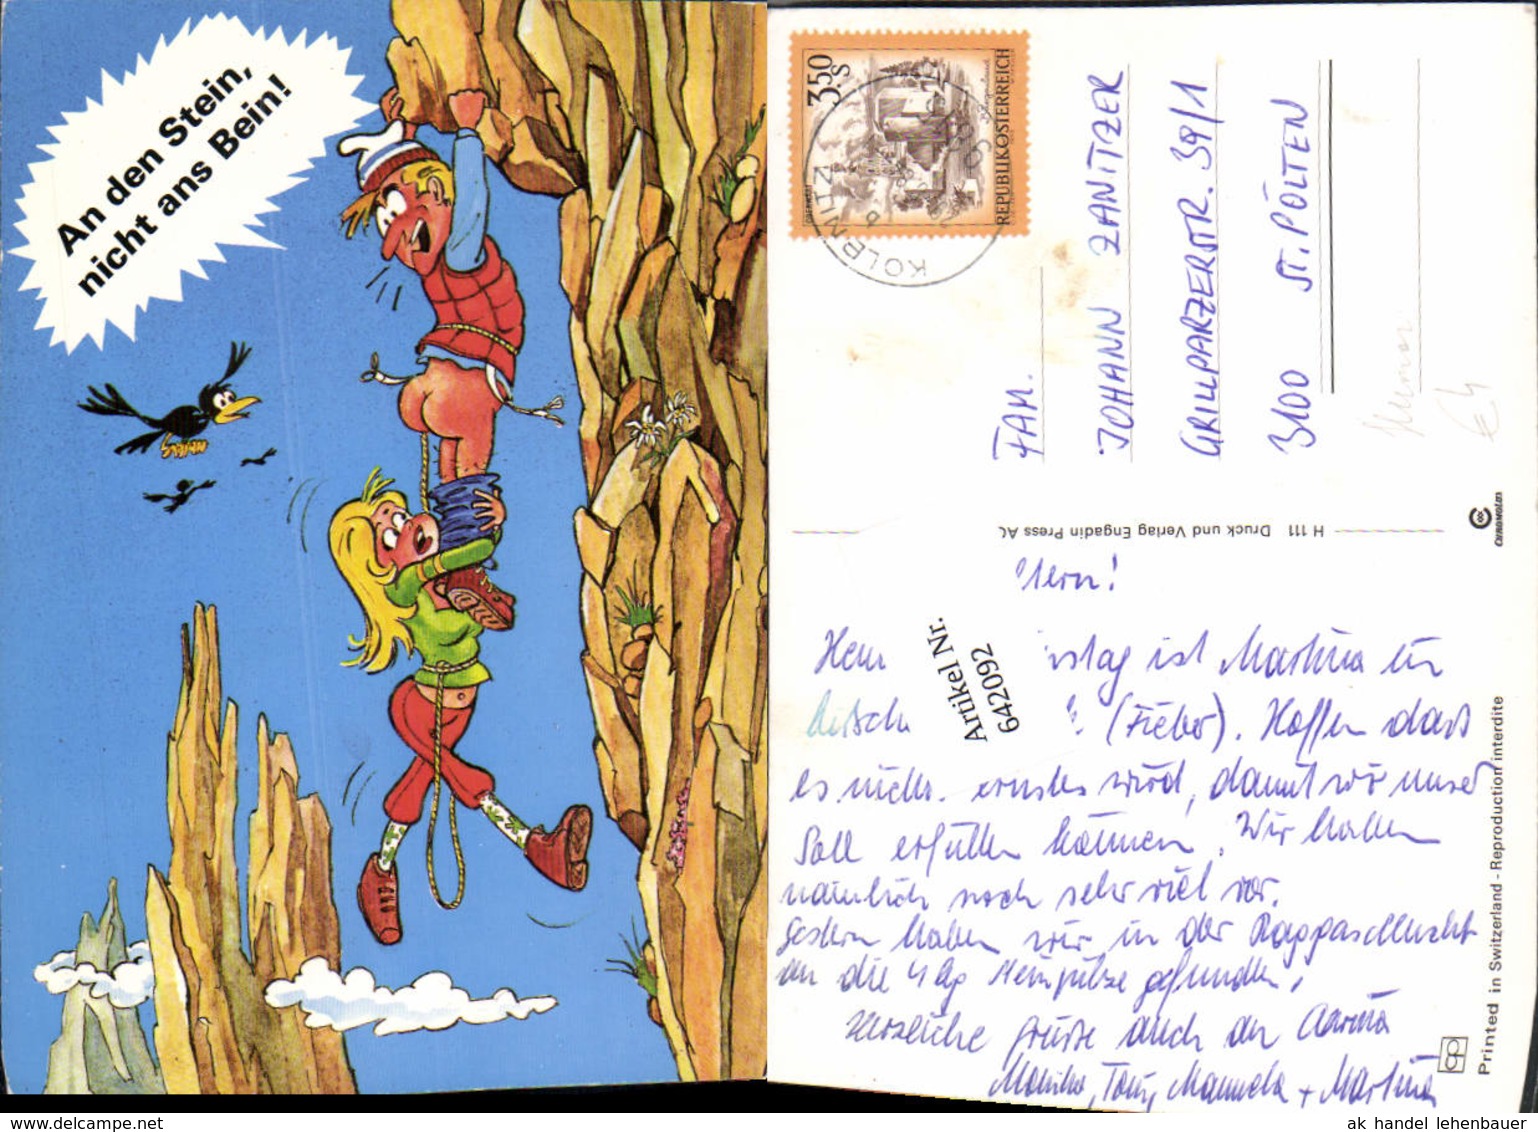 An den Stein,
nicht ans Bein!
Stefan
3.50 S
REPUBLIK ÖSTERREICH
OBERNAU
KOLBNITZ
FAM.
JOHANN ZANITZER
GRILLPARZERSTR. 39/1
3100 ST. PÖLTEN
Humor
€ 4
H 111 Druck und Verlag Engadin Press AG
CHROMOLUX
Printed in Switzerland - Reproduction interdite
Artikel Nr.
642092
stag ist Martina ein
(Fieber). Hoffen dass
es nicht ernstes wird, damit wir unser
Soll erfüllen können. Wir haben
nämlich noch sehr viel vor.
Gestern haben wir in der
an die 4 kg gefunden.
Herzliche Grüsse auch an
Monika, Tony, Manuela + Martina
ak handel lehenbauer